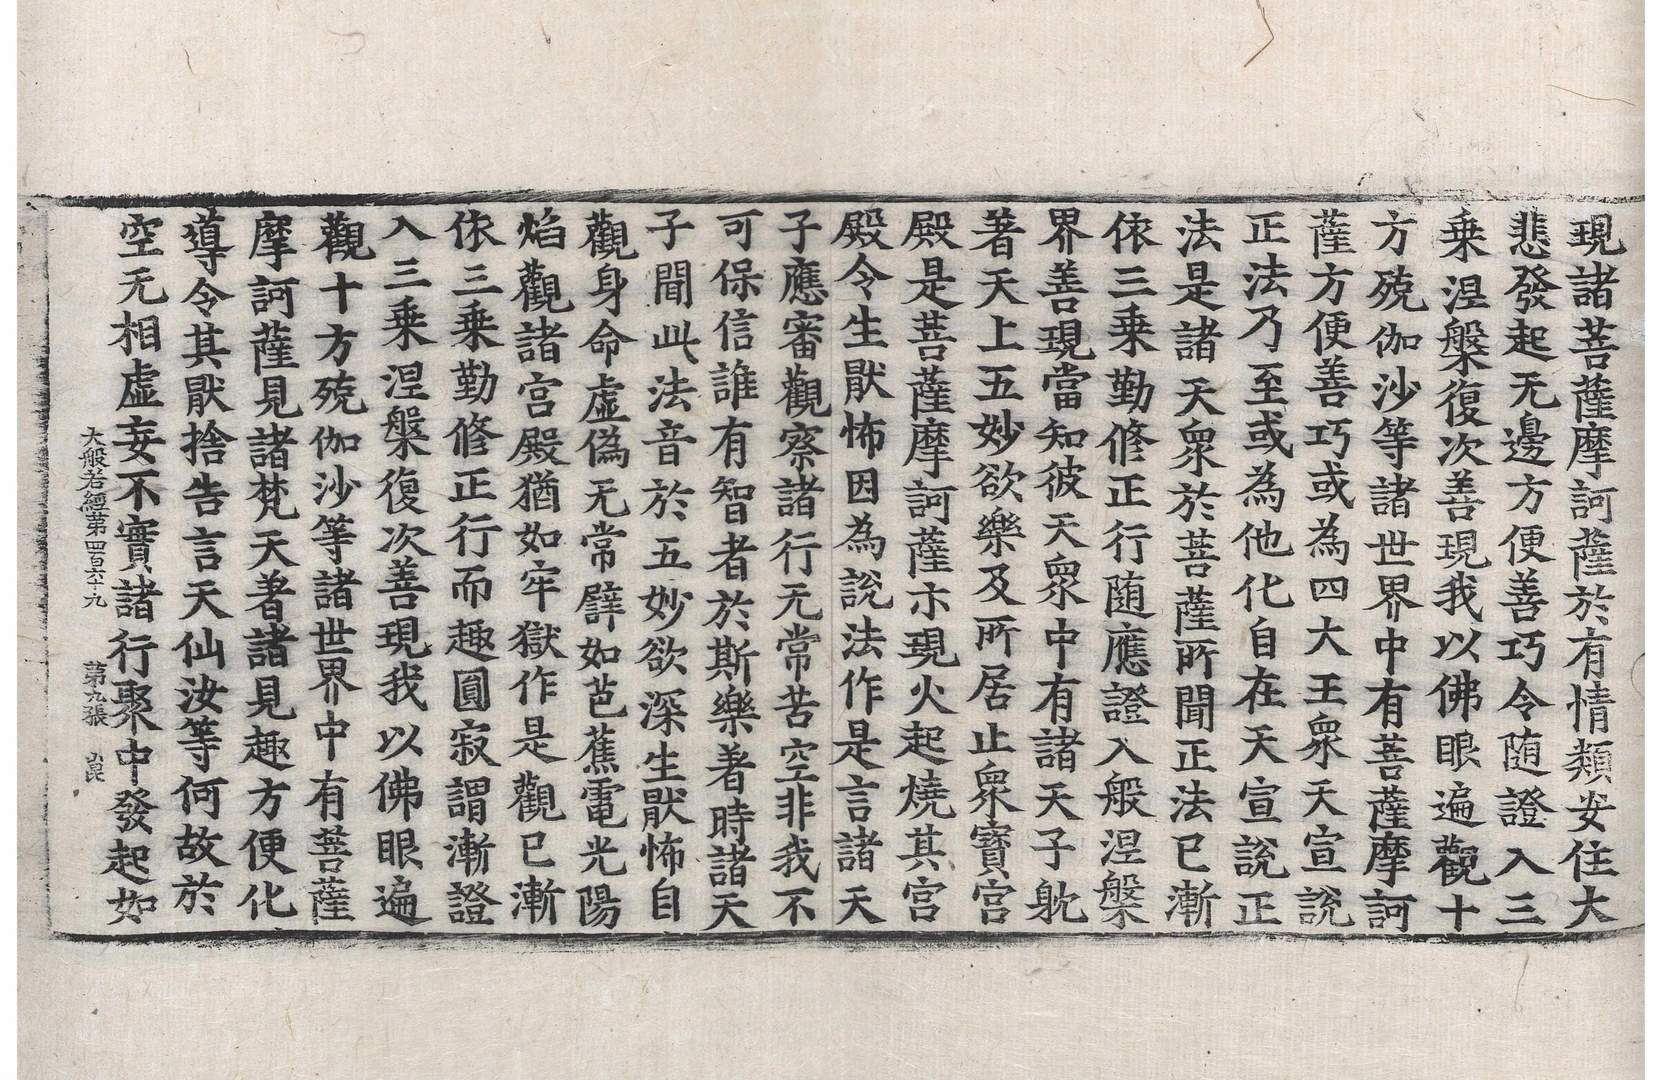 現諸菩薩摩訶薩於有情類安住大
悲發起无邊方便善巧令随證入三
乗涅槃復次善現我以佛眼遍觀十
方殑伽沙等諸世界中有菩薩摩訶
薩方便善巧或為四大王衆天宣說
正法乃至或為他化自在天宣說正
法是諸天衆於菩薩所聞正法已漸
依三乗勤修正行随應證入般涅槃
界善現當知彼天衆中有諸天子躭
著天上五妙欲樂及所居止衆寶宮
殿是菩薩摩訶薩示現火起燒其宮
殿令生猒怖因為說法作是言諸天
子應審觀察諸行无常苦空非我不
可保信誰有智者於斯樂著時諸天
子聞此法音於五妙欲深生猒怖自
觀身命虛偽无常譬如芭蕉電光陽
焰觀諸宮殿猶如牢獄作是觀已漸
依三乗勤修正行而趣圓寂謂漸證
入三乗涅槃復次善現我以佛眼遍
觀十方殑伽沙等諸世界中有菩薩
摩訶薩見諸梵天著諸見趣方便化
導令其猒捨告言天仙汝等何故於
空无相虛妄不實諸行聚中發起如
大般若經第四百六十九 第九張